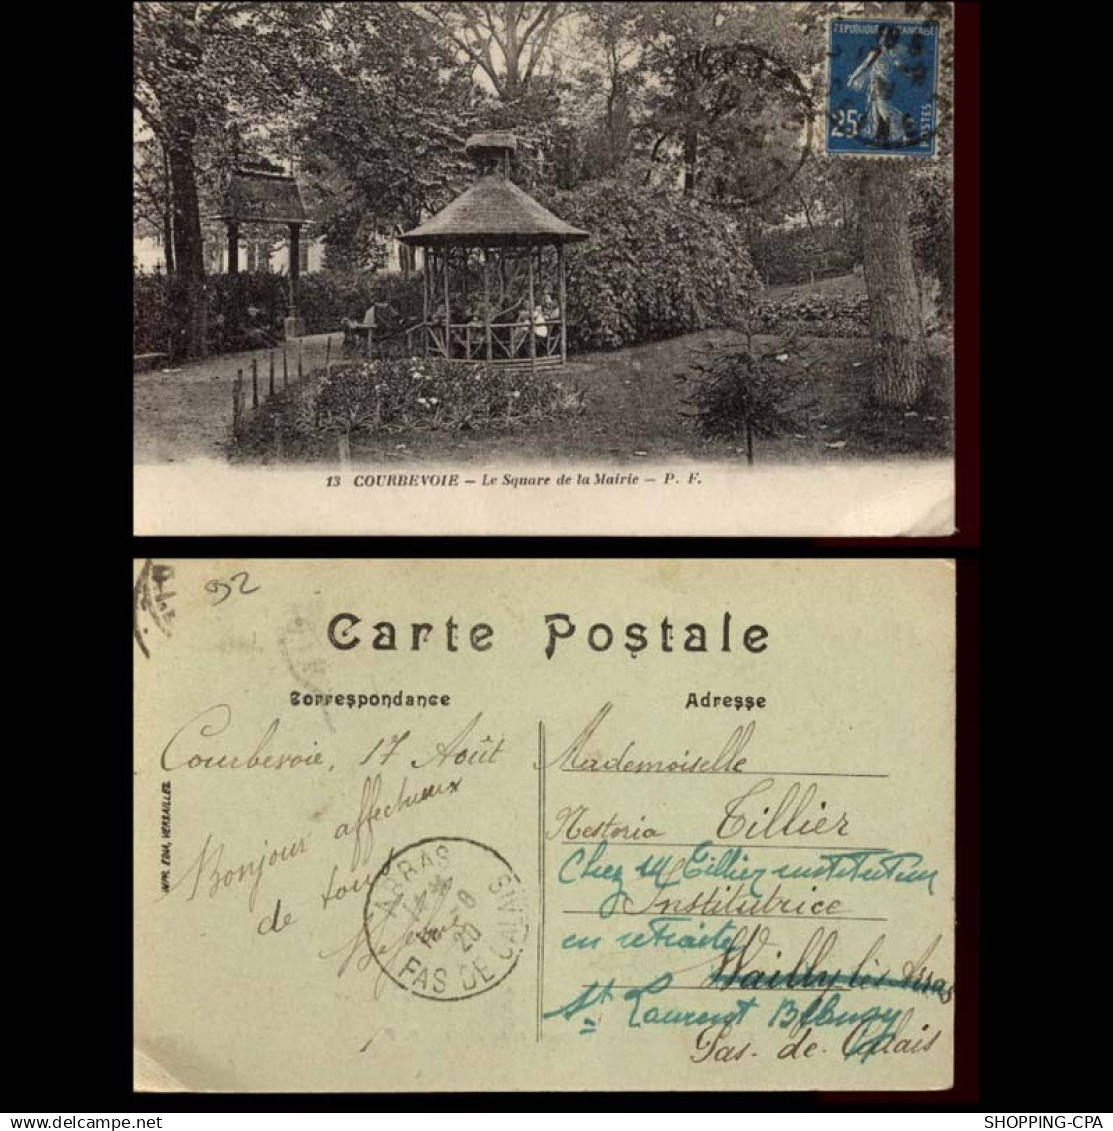 RÉPUBLIQUE FRANÇAISE
25c
POSTES
13 COURBEVOIE — Le Square de la Mairie — P. F.
92
Carte Postale
Correspondance
Adresse
Courbevoie, 17 Août
Bonjour affectueux
de tous
IMP. EDIA, VERSAILLES.
ARRAS
8
20
PAS DE CALAIS
Mademoiselle
Nestoria Tillier
Chez M Tillier instituteur
Institutrice
en retraite
Wailly lès Arras
St Laurent Blangy
Pas-de-Calais
SHOPPING-CPA